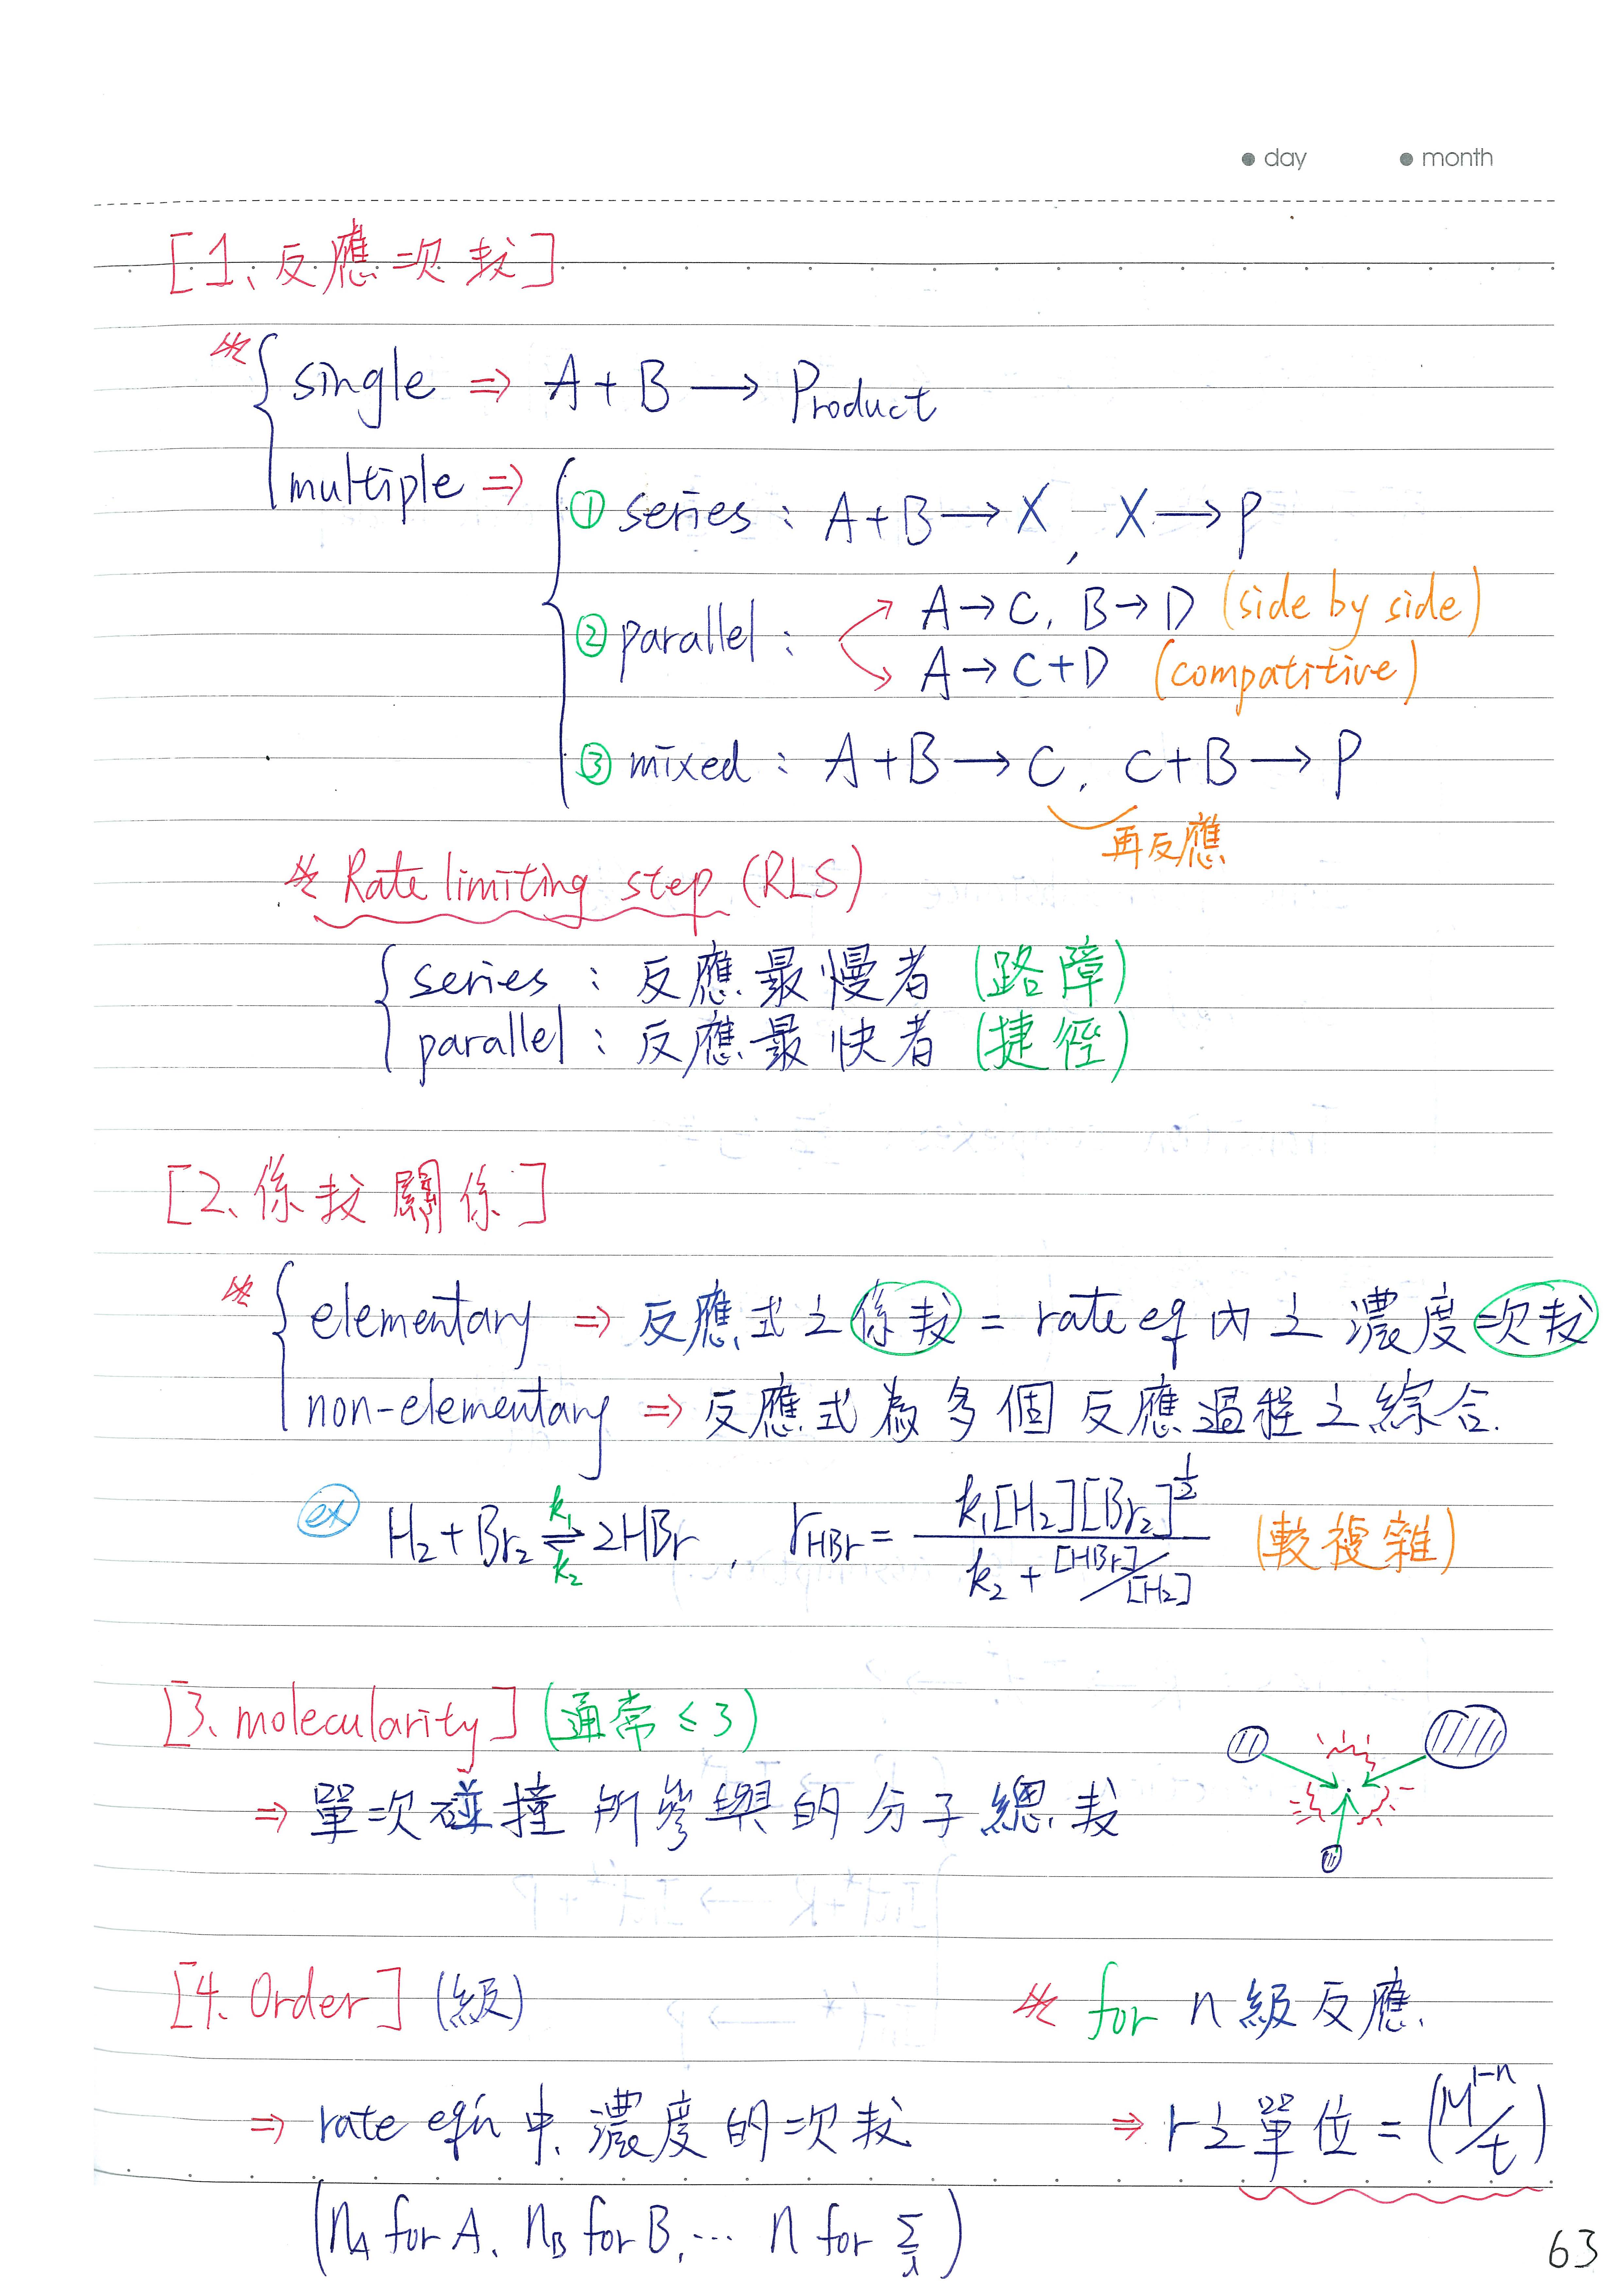 day month
[1、反應次数]
※ single ⇒ A + B → Product
multiple ⇒ ① series : A + B → X , X → P
② parallel : A → C, B → D (side by side)
A → C + D (compatitive)
③ mixed : A + B → C, C + B → P
再反應
※ Rate limiting step (RLS)
series : 反應最慢者 (路障)
parallel : 反應最快者 (捷徑)
[2、係数關係]
※ elementary ⇒ 反應式之係数 = rate eq 內之濃度次数
non-elementary ⇒ 反應式為多個反應過程之綜合.
ex H₂ + Br₂ ⇌ 2HBr , r_HBr = k₁[H₂][Br₂]^½ / (k₂ + [HBr]/[H₂]) (較複雜)
k₁
k₂
[3、molecularity] (通常 ≤ 3)
⇒ 單次碰撞所參與的分子總数
[4、Order] (級) ※ for n 級反應.
⇒ rate eq'n 中、濃度的次数 ⇒ r 之單位 = (M^1-n / t)
(n_A for A, n_B for B, … n for Σ_i)
63